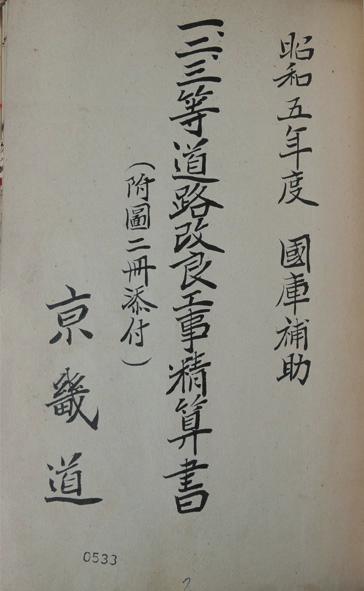 昭和五年度　國庫補助
一、二、三等道路改良工事精算書
（附圖二冊添付）
京畿道
0533
2